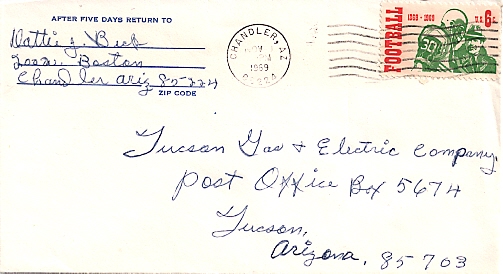 AFTER FIVE DAYS RETURN TO
Hattie J. Beck
Boston
Chandler Ariz 85224
ZIP CODE
CHANDLER, AZ
1969
FOOTBALL
1869-1969
U.S. 6c
Tucson Gas & Electric Company
Post Office Box 5674
Tucson,
Arizona, 85703